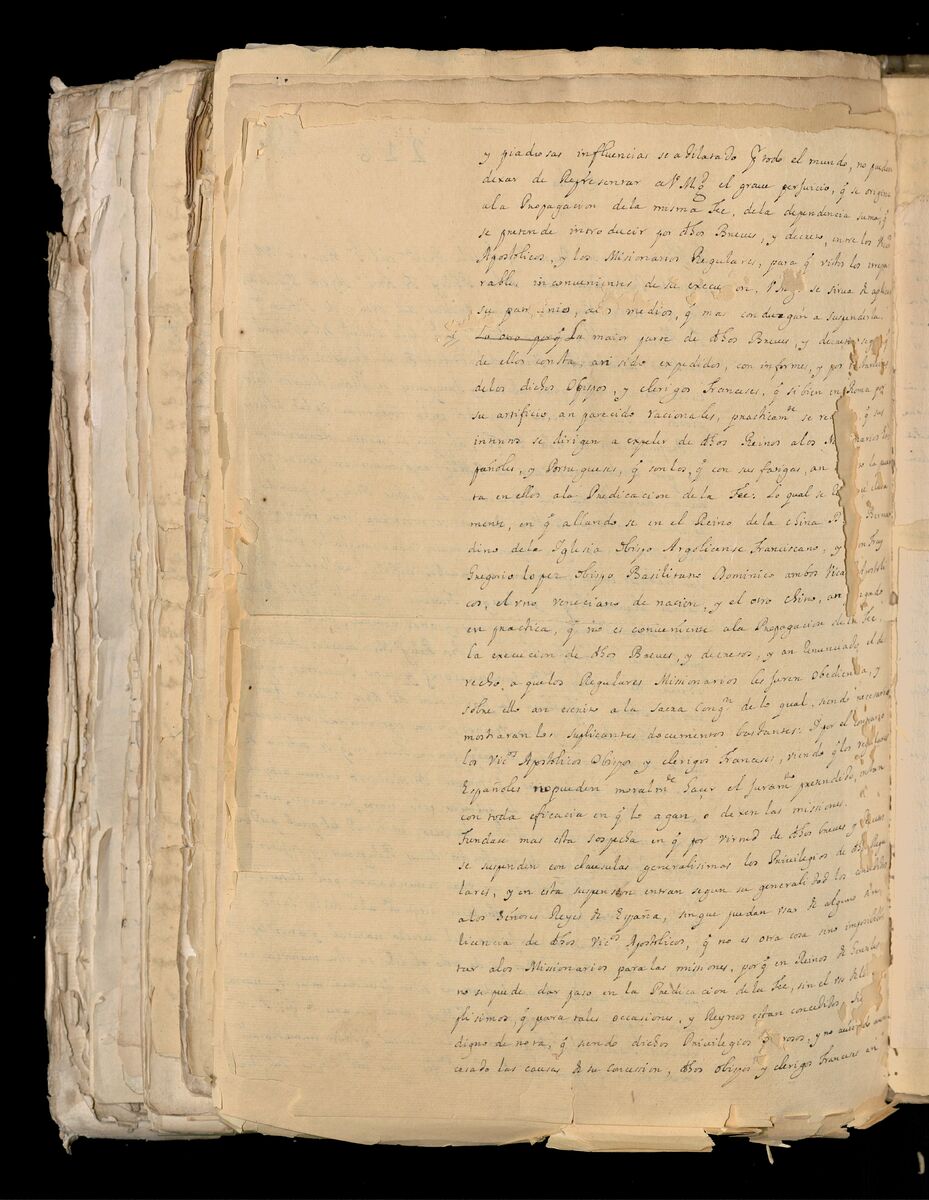 y piadosas influencias se a dilatado p todo el mundo, no pueden
dexar de Representar a V. Mg. el graue perjuicio, q̃ se origina
ala Propagacion dela misma Fee, de la dependencia suma, q̃
se pretende introducir por dhos Breves, y decreto, entre los Vic.
Apostolicos, y los Misionarios Regulares, para q̃ vistos los irrepa
rables inconvenientes de su execucion, V. Mg. se sirua de aplicar
su patrocinio, alos medios, q̃ mas conduzgan a suspenderla.
La maior parte de dhos Breues, y decretos segun
de ellos consta, an sido expedidos, con informes, y por instancias
delos dichos Obispos, y clerigos Franceses, q̃ si bien en Roma por
su artificio, an parecido racionales, practicamte se q̃ sus
intentos se dirigen a expeler de dhos Reinos alos Es
pañoles, y Portugueses, q̃ son los, q̃ con sus fatigas, an la puer
ta en ellos ala Predicacion de la Fee: Lo qual se clara
mente, en q̃ allando se en el Reino de la china Bernar
dino dela Iglesia Obispo Argolicense Franciscano, y Don Fray
Gregorio lopez Obispo Basilitano Dominico ambos Vica Apostoli
cos, el vno veneciano de nacion, y el otro chino, an
en practica, q̃ no es conueniente ala Propagacion dela Fee,
la execucion de dhos Breues, y decretos, y an renunciado, el de
recho, a que los Regulares Missionarios les juren obediencia, y
sobre ello an escrito a la Sacra Congn de lo qual, siendo necesario
mostraran los suplicantes documentos bastantes: Y por el contrario
los Vicos Apostolicos Obispos y clerigos Franceses, viendo q̃ los regulares
Españoles no pueden moralmte hacer el juramto pretendido,
con toda eficacia en q̃ lo agan, o dexen las missiones.
Fundase mas esta sospecha en q̃ por virtud de dhos breues y
se suspenden con clausulas generalisimas los Privilegios de
lares, y en esta suspension entran segun su generalidad los concedidos
alos Señores Reyes de España, sin que puedan vsar de alguno sin
licencia de dhos Vicos Apostolicos, q̃ no es otra cosa sino imposibili
tar alos Missionarios para las missiones, porq̃ en Reinos de Gentiles
no se puede dar paso en la Predicacion de la Fee, sin el vso de
plisimos, q̃ para tales occasiones, y Reynos estan concedidos.
digno de nota, q̃ siendo dichos Privilegios y no auiendo
cesado las causas de su concession, dhos Obispos y clerigos Franceses en